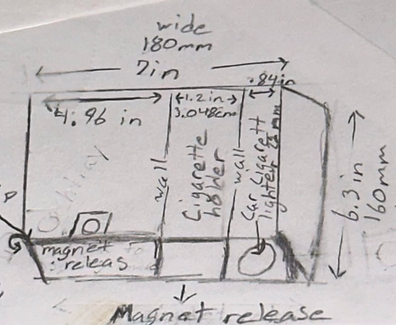 wide
180mm
7in
4.96 in
1.2 in
3.048cm
.84in
wall
Cigarette
holder
wall
Car cigarett
lighter
mm
6.3 in
160mm
magnet
releas
Magnet release